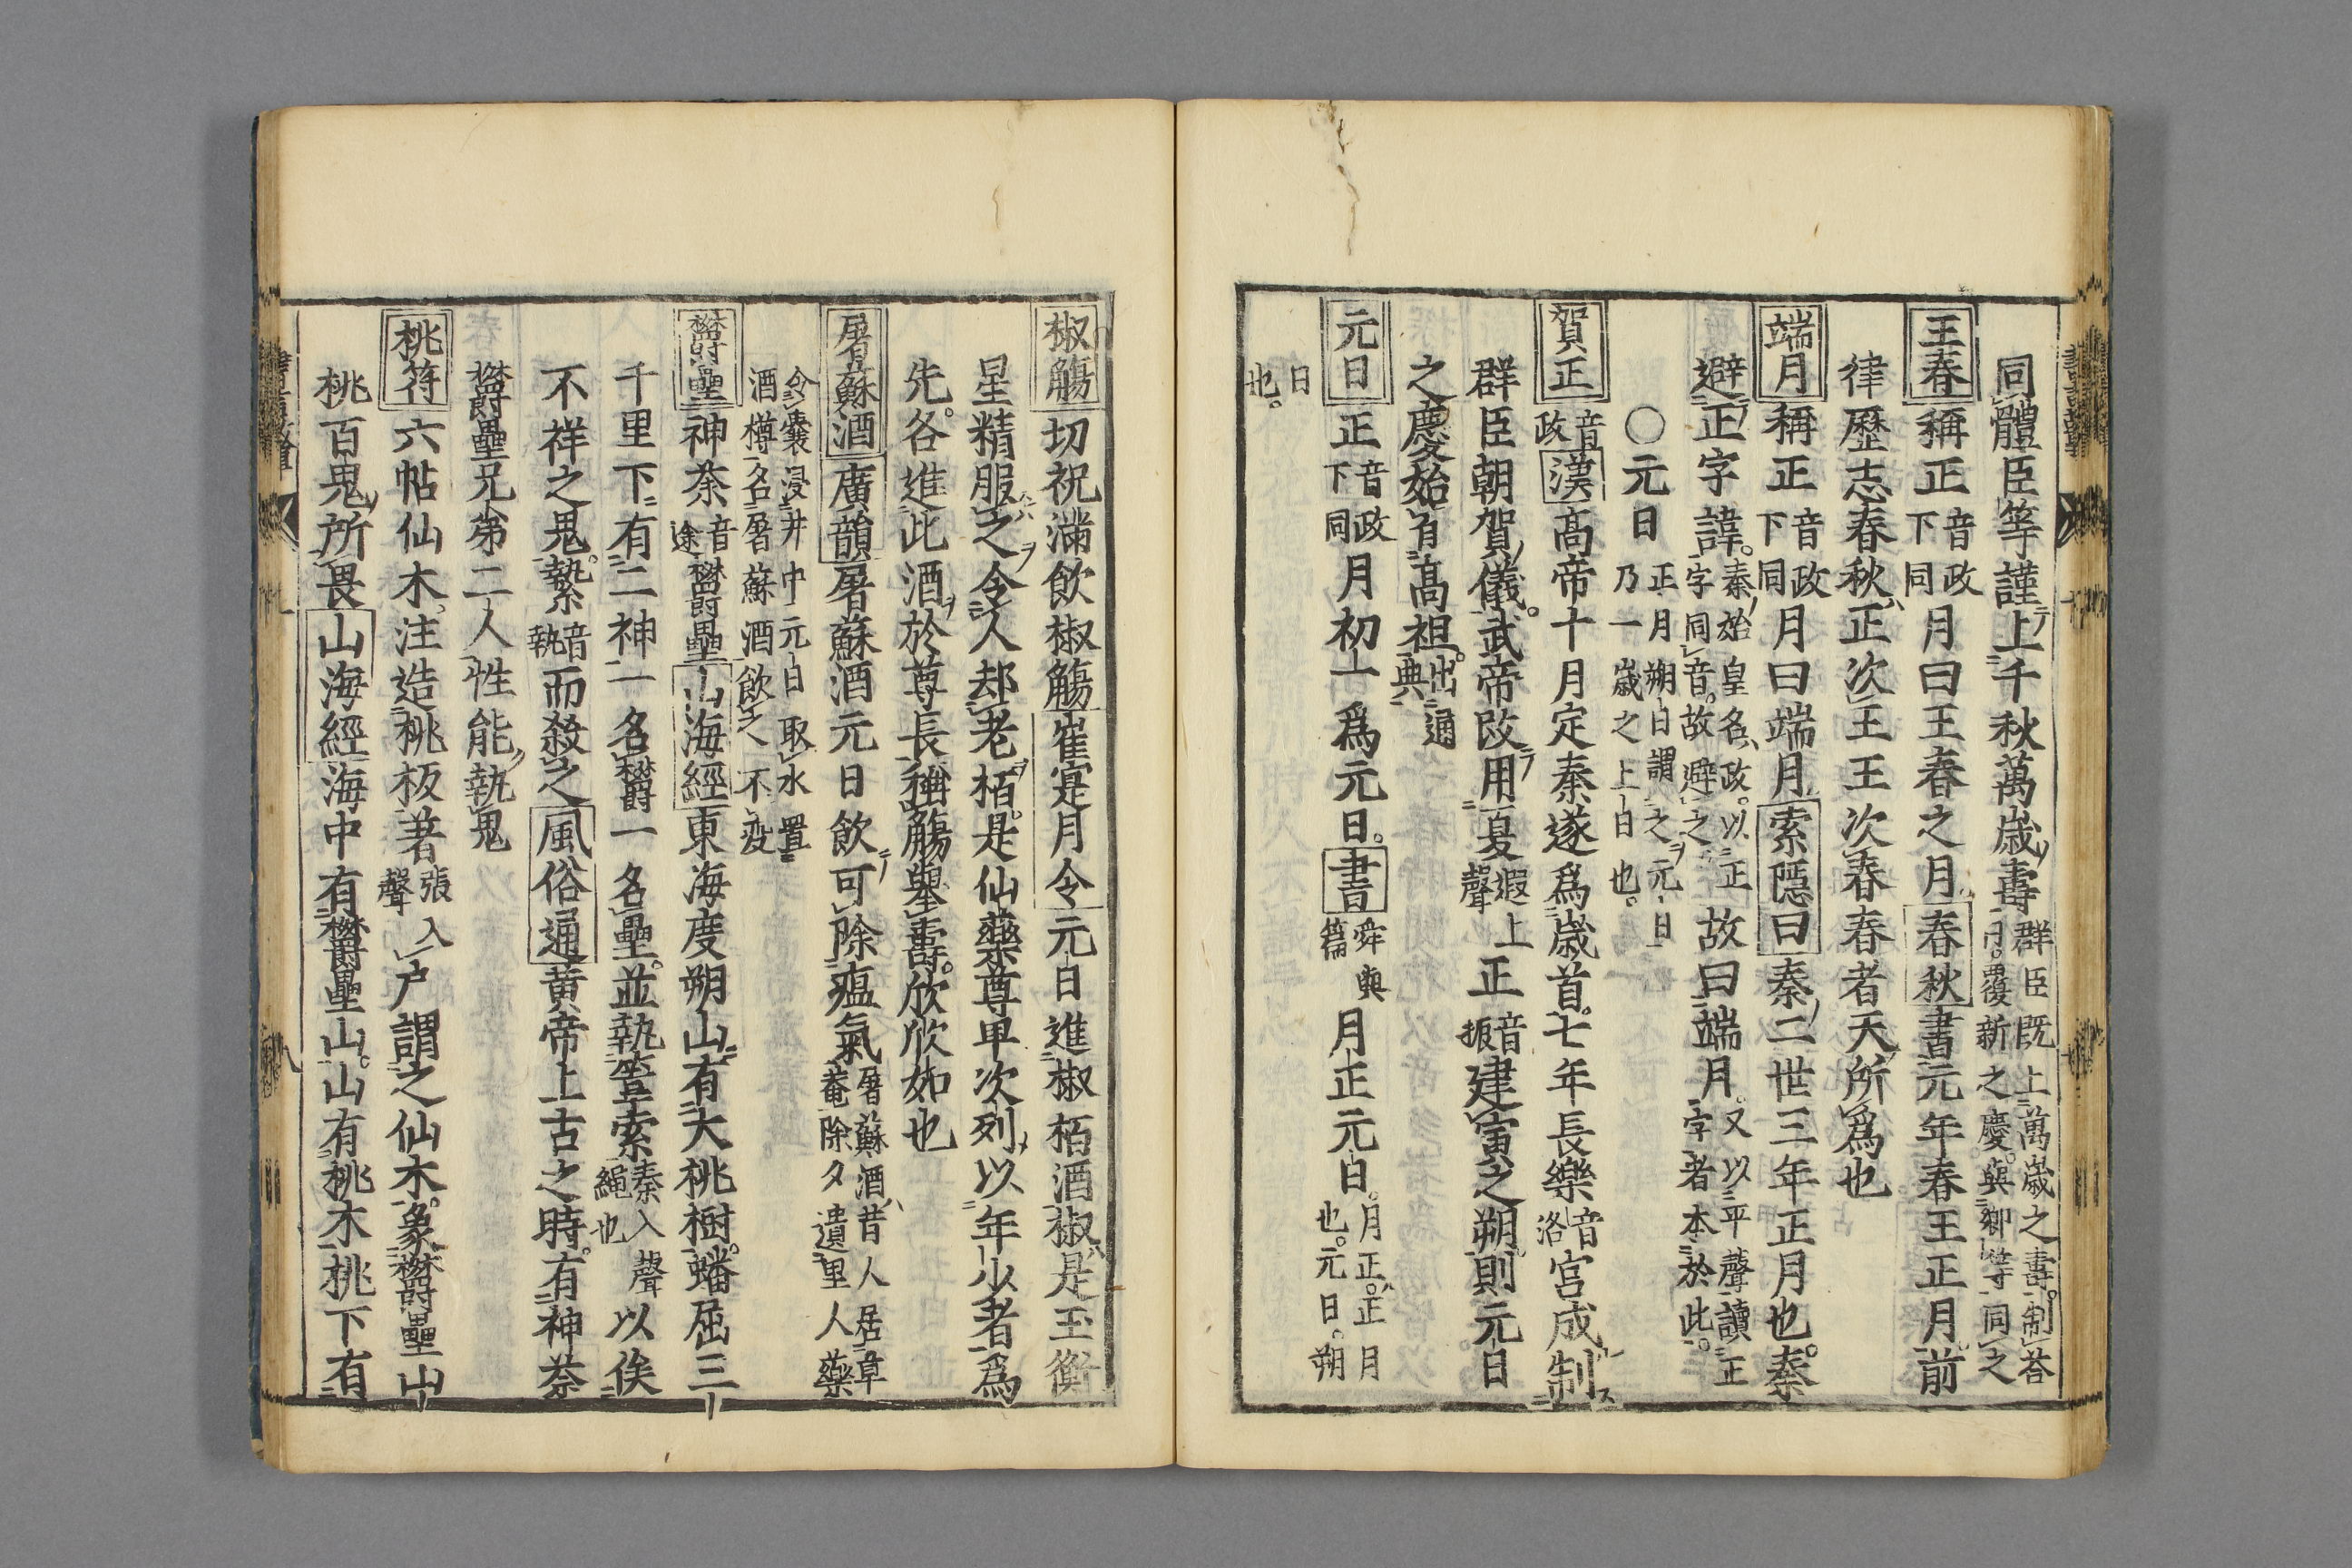 同體臣等謹上千秋萬歲壽群臣既上萬歲之壽制荅曰覆新之慶與卿等同之
王春稱正音政下同月曰王春之月春秋書元年春王正月前
律歷志春秋正次王王次春春者天所爲也
端月稱正音政下同月曰端月索隱曰秦二世三年正月也秦
避正字諱秦始皇名政以正字同音故避之故曰端月又以平聲讀正字者本於此
〇元日正月朔日謂之元日乃一歲之上日也
賀正音政漢高帝十月定秦遂爲歲首七年長樂音洛宮成制
群臣朝賀儀武帝改用夏遐上聲正音振建寅之朔則元日
之慶始自高祖出通典
元日正音政下同月初一爲元日書舜典篇月正元日月正正月也元日朔
日也
椒觴切祝滿飲椒觴崔寔月令元日進椒栢酒椒是玉衡
星精服之令人却老栢是仙藥尊卑次列以年少者爲
先各進此酒於尊長稱觴舉壽欣欣如也
屠蘇酒廣韻屠蘇酒元日飲可除瘟氣屠蘇酒昔人居草菴除夕遺里人藥
令囊浸井中元日取水置酒樽名屠蘇酒飲之不変
欝壘神荼音途欝壘山海經東海度朔山有大桃樹蟠屈三
千里下有二神一名欝一名壘並執䇶索秦入聲繩也以俟
不祥之鬼縶音執而殺之風俗通黄帝上古之時有神荼
欝壘兄弟二人性能執鬼
桃符六帖仙木注造桃板著張入聲户謂之仙木象欝壘山
桃百鬼所畏山海經海中有欝壘山山有桃木桃下有